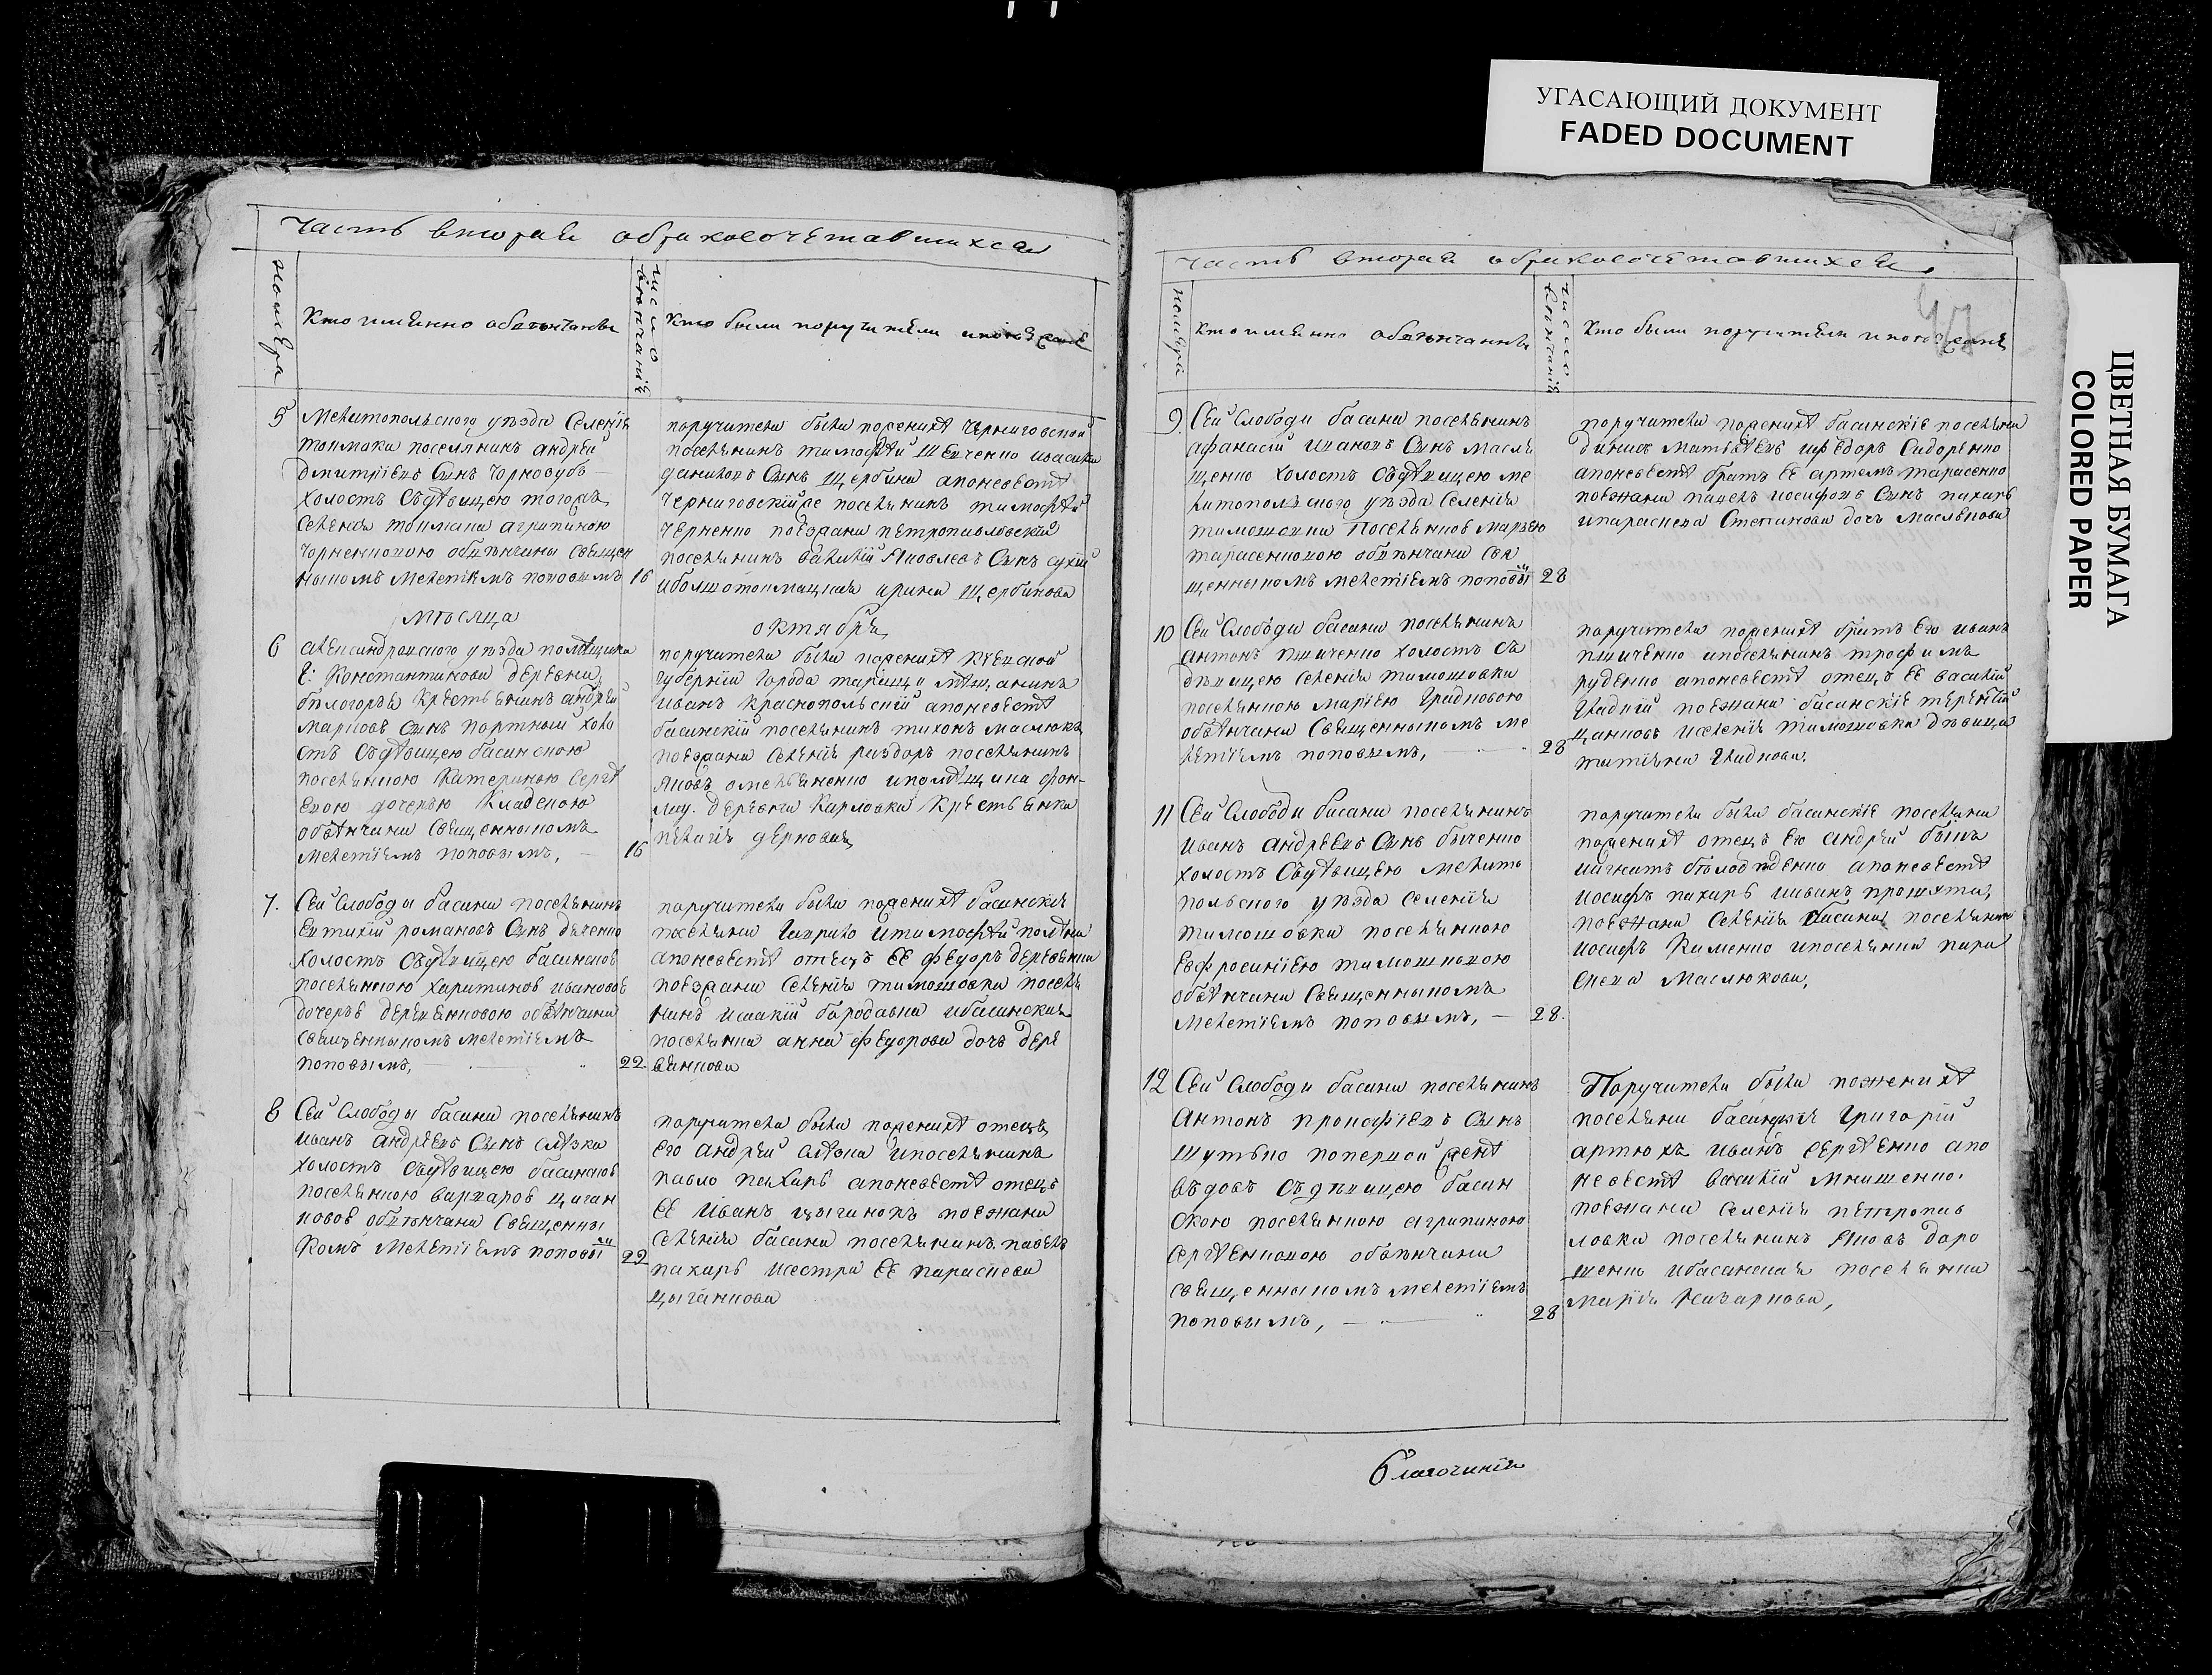 УГАСАЮЩИЙ ДОКУМЕНТ
FADED DOCUMENT
ЦВЕТНАЯ БУМАГА
COLORED PAPER
часть вторая обракосочетавшихся
номера
Кто именно обвенчанны
число венчанія
Кто были поручители
5
Мелитопольского уезда Селенія
токмака поселянинъ андрей
Дмитріевъ Сынъ Чорнозубъ
холостъ Съдѣвицею тогожъ
Селенія токмака агрипиною
обвѣнчаны Священ
ныкомъ Мелетіемъ поповымъ
16
поручители были пожених Черниговской
поселянинъ тимофѣй Шевченко ивасили
даниловъ Сынъ Щербина апоневестѣ
Черниговскійже поселянинъ тимофѣй
черненко поезжани петропавловскій
поселянинъ василій Яковлевъ Сынъ сухій
иболшотокмацкая ирина щербинова
мѣсяца
октября
6
александровского уезда помѣщика
Константинова деревни
бѣлогорья крестьянинъ андрей
марковъ Сынъ портный холо
стъ Съдѣвицею басанскою
поселянкою Катериною Сергѣ
евою дочерью Кладькою
обвѣнчаны Священныкомъ
Мелетіемъ поповымъ,
16
поручители были пожених Кіевской
губерніи города таращи мѣщанинъ
иванъ Краснопольскій апоневестѣ
басанскій поселянинъ тихонъ маслюкъ
поезжани Селенія раздоръ поселянинъ
Яковъ омельяненко ипомѣщика фон-
деревни Карловки Крестьянка
пелагія дерновая
7.
Сей Слободы басани поселянинъ
Евтихій романовъ Сынъ дяченко
холостъ Съдѣвицею басанскою
поселянкою харитиною ивановою
дочерью деревянковою обвѣнчаны
священныкомъ мелетіемъ
поповымъ,
22
поручители были пожених басанскіе
поселяни Гаврило итимофѣй
апоневестѣ отецъ ее федоръ деревянко
поезжани Селенія тимошовки поселя
нинъ исаакій бородавка ибасанская
поселянка анна федорова дочь дере
вянкова
8
Сей Слободы басани поселянинъ
иванъ андреевъ Сынъ слѣзка
холостъ Съдѣвицею басанскою
поселянкою варварою циган
ковою обвѣнчаны Священны
Комъ Мелетіемъ поповы
22
поручители были пожених отецъ
его андрей слѣзка ипоселянинъ
павло пахарь апоневестѣ отецъ
ее иванъ цыганокъ поезжани
Селенія басани поселянинъ павелъ
пахарь исестра ее параскева
цыганкова
часть вторая обракосочетавшихся
номера
Кто именно обвенчанны
число венчанія
Кто были поручители
47
9
Сей Слободи басани поселянинъ
афанасій ивановъ Сынъ Масли
щенко холостъ Съдѣвицею ме
литопольского уезда Селенія
тимошовки поселянкою марѳею
тарасенковою обвѣнчани Свя
щенныкомъ мелетіемъ поповы
28
поручители пожених басанскіе поселяни
матвѣевъ ифедоръ Сидоренко
апоневестѣ братъ ее артемъ тарасенко
поезжани павелъ иосифовъ Сынъ пахарь
ипараскева Степанова дочь Маслюкова
10
Сей Слободи басани поселянинъ
антонъ пшиченко холостъ Съ
дѣвицею Селенія тимошовки
поселянкою маріею Гладковою
обвѣнчани Священныкомъ ме
летіемъ поповымъ,
28
поручители пожених братъ его иванъ
пшиченко ипоселянинъ трофимъ
руденко апоневестѣ отецъ ее василій
Гладкій поезжани басанскіе терентій
иселенія тимошовки дѣвица
татіяна Гладкова.
11
Сей Слободи басани поселянинъ
иванъ андреевъ Сынъ быченко
холостъ Съдѣвицею мелито
польского уезда Селенія
тимошовки поселянкою
Евфросиніею тимошковою
обвѣнчани Священныкомъ
Мелетіемъ поповымъ,
28.
поручители были басанскіе поселяни
пожених отецъ его андрей быкъ
апоневестѣ
иосифъ пахарь ииванъ
поезжани Селенія басани поселянинъ
иосифъ Клименко ипоселянка пара
скева Маслюкова,
12
Сей Слободи басани поселянинъ
Антонъ прокофіевъ Сынъ
Шутько попервой женѣ
въдовъ Съдѣвицею басан
скою поселянкою агрипиною
Сергѣенковою обвѣнчани
священныкомъ мелетіемъ
поповымъ,
28
Поручители были поженихѣ
поселяни басанскіе Григорій
артюхъ иванъ сергѣенко апо
невестѣ василій Мнишенко.
поезжани Селенія петропав
ловки поселянинъ Яковъ доро
шенко ибасанская поселянка
Марія Назаркова,
благочинія